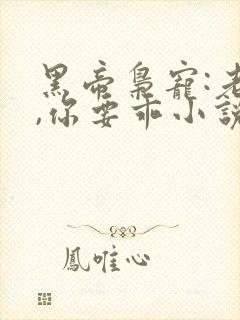 黑帝梟寵:老
,你要乖小說
鳳唯心